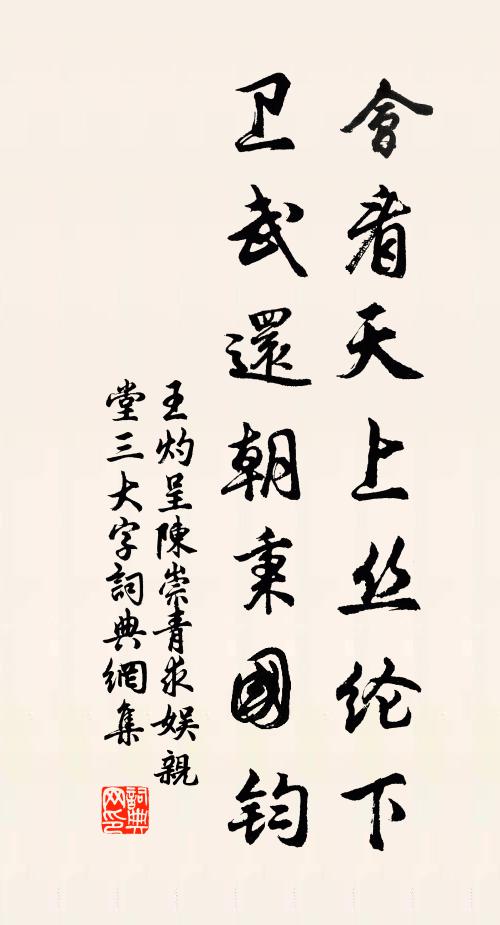 會看天上丝纶下
卫武還朝秉國鈞
王灼呈陳崇青求娱親
堂三大字詞典網集
詞典網印